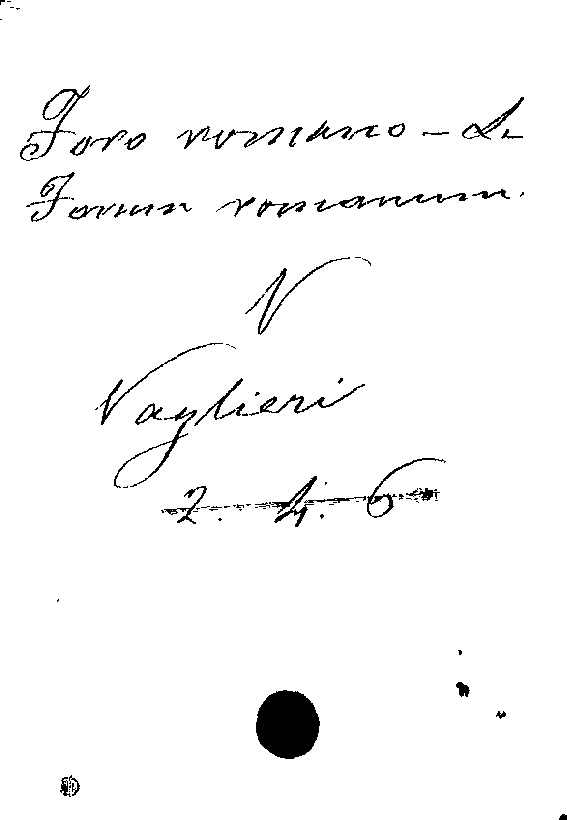 Foro romano - L.
Forum romanum.
V
Vaglieri
2. 4. 6